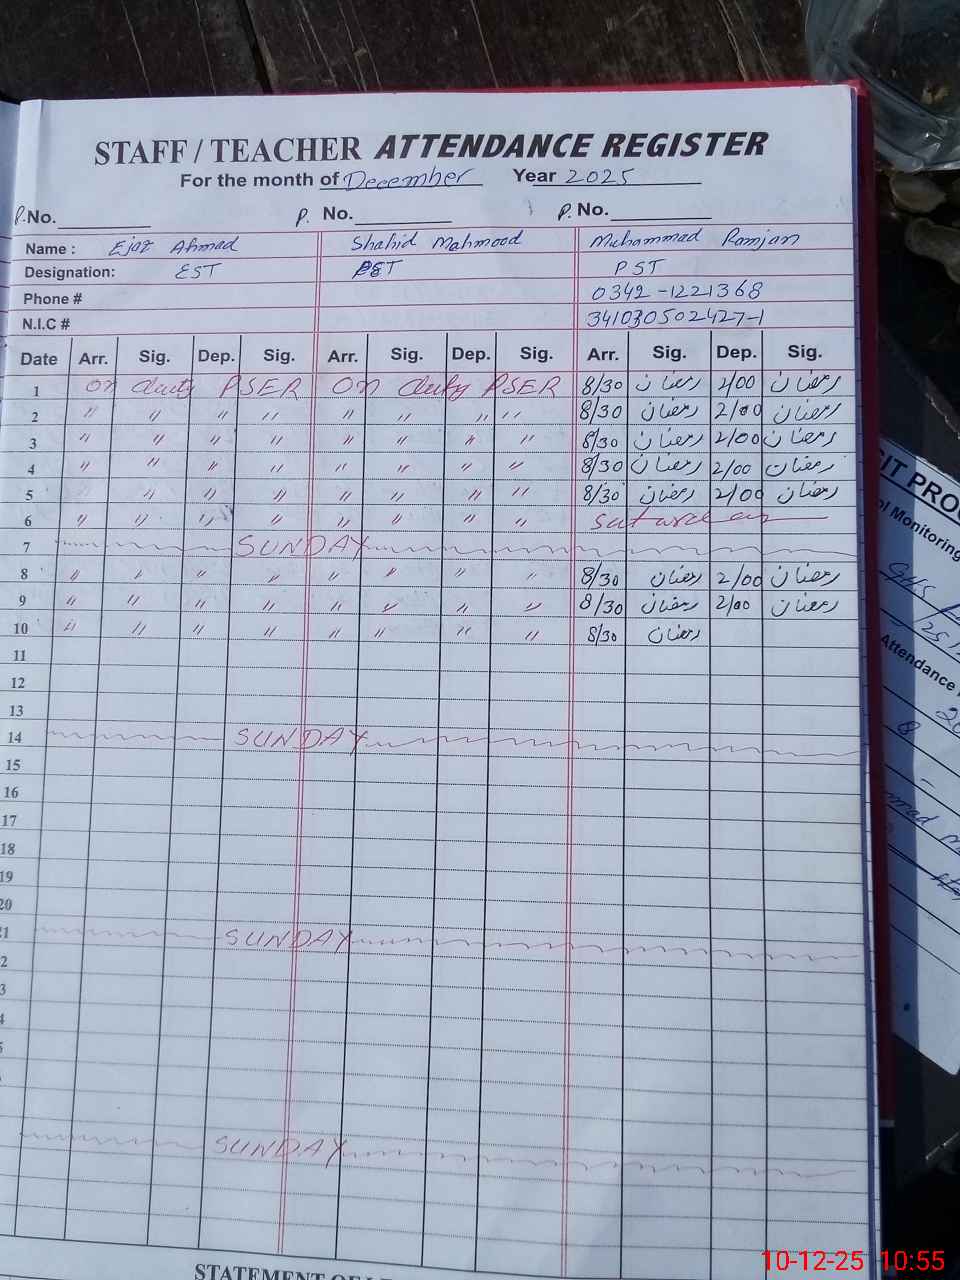 STAFF / TEACHER ATTENDANCE REGISTER
For the month of December Year 2025
P. No. P. No. P. No.
Name : Ejaz Ahmad Shahid Mahmood Muhammad Ramjan
Designation: EST PST PST
Phone # 0342-1221368
N.I.C # 341030502427-1
Date Arr. Sig. Dep. Sig. Arr. Sig. Dep. Sig. Arr. Sig. Dep. Sig.
1 on duty PSER on duty PSER 8/30 رمضان 2/00 رمضان
2 " " " " " " " " 8/30 رمضان 2/00 رمضان
3 " " " " " " " " 8/30 رمضان 2/00 رمضان
4 " " " " " " " " 8/30 رمضان 2/00 رمضان
5 " " " " " " " " 8/30 رمضان 2/00 رمضان
6 " " " " " " " "
7 SUNDAY
8 " " " " " " " " 8/30 رمضان 2/00 رمضان
9 " " " " " " " " 8/30 رمضان 2/00 رمضان
10 " " " " " " " " 8/30 رمضان
11
12
13
14 SUNDAY
15
16
17
18
19
20
1 SUNDAY
2
3
4
5
SUNDAY
STATEMENT OF
SIT PRO
ol Monitoring
GHS
Attendance
8
10-12-25 10:55